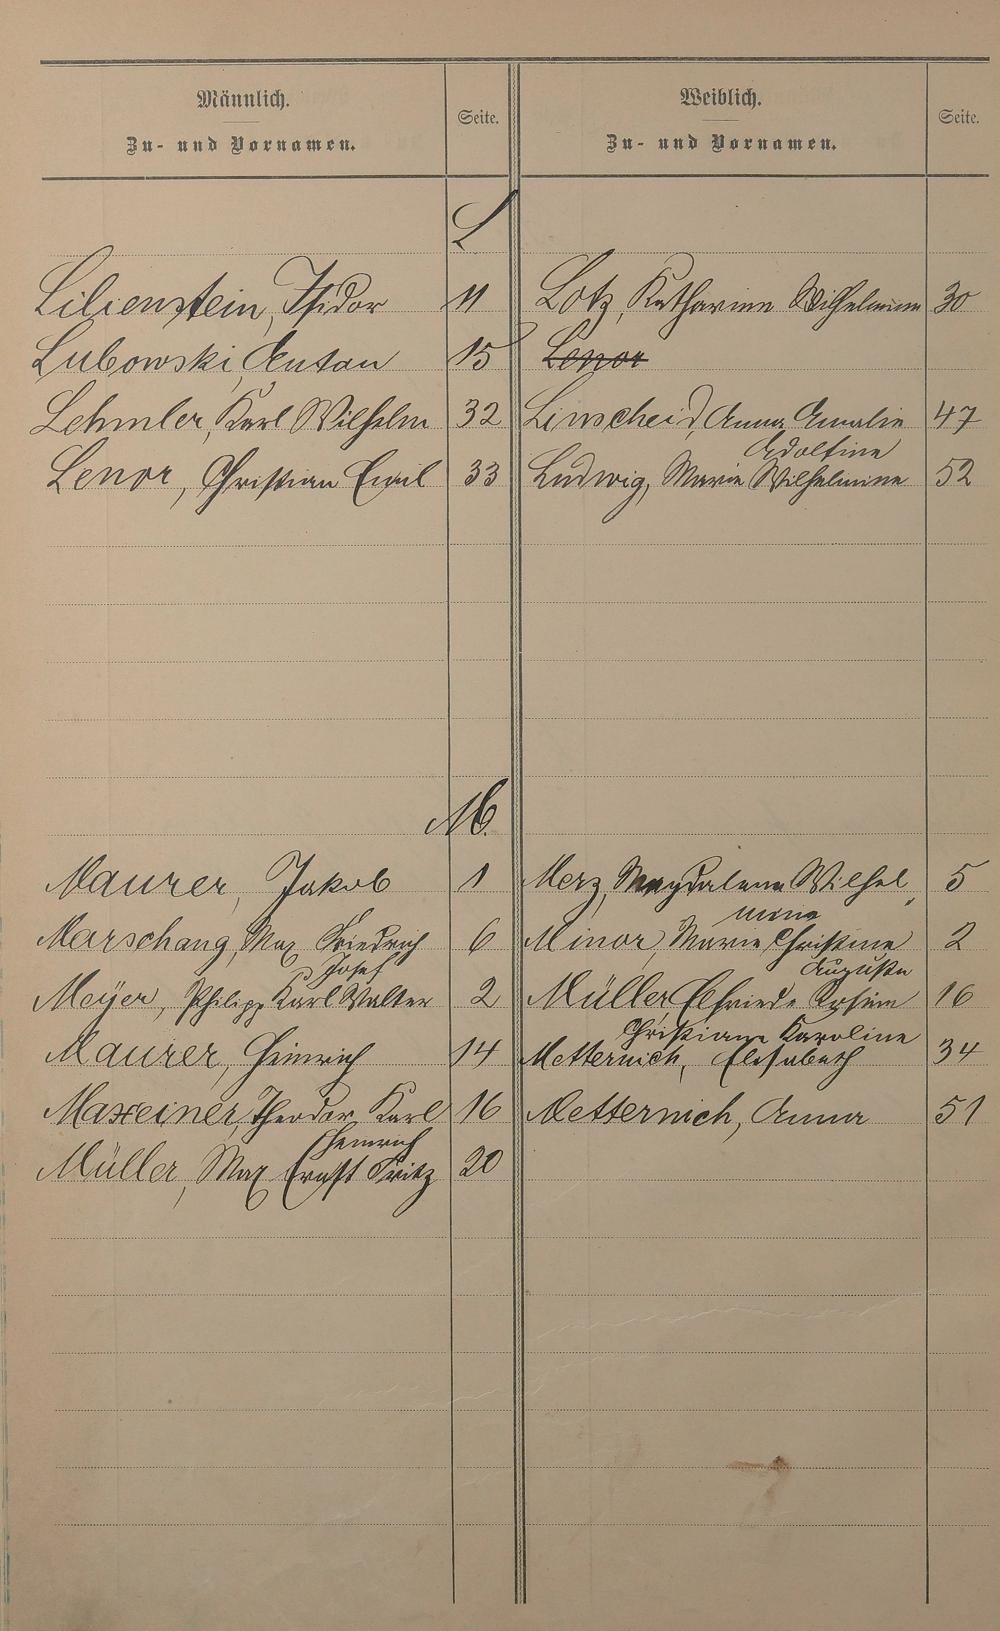 Männlich.
Zu- und Vornamen.
Seite.
Weiblich.
Zu- und Vornamen.
Seite.
L
Lilienstein, Isidor 11
Lotz, Katharina Wilhelmine 30
Lubowski, Anton 15
Lenor
Lehmler, Karl Wilhelm 32
Linscheid, Anna Amalie 47
Adolfine
Lenor, Christian Emil 33
Ludwig, Maria Wilhelmine 52
M.
Maurer, Jakob 1
Merz, Magdalena Wilhel„ 5
mina
Marschang, Max Friedrich 6
Minor, Marie Christine 2
Josef
Auguste
Meÿer, Philipp Karl Walter 2
Müller, Elfriede 16
Christiane Karoline
Maurer, Heinrich 14
Metternich, Elisabeth 34
Maxeiner, Theodor Karl 16
Metternich, Anna 51
Heinrich
Müller, Max Ernst Fritz 20